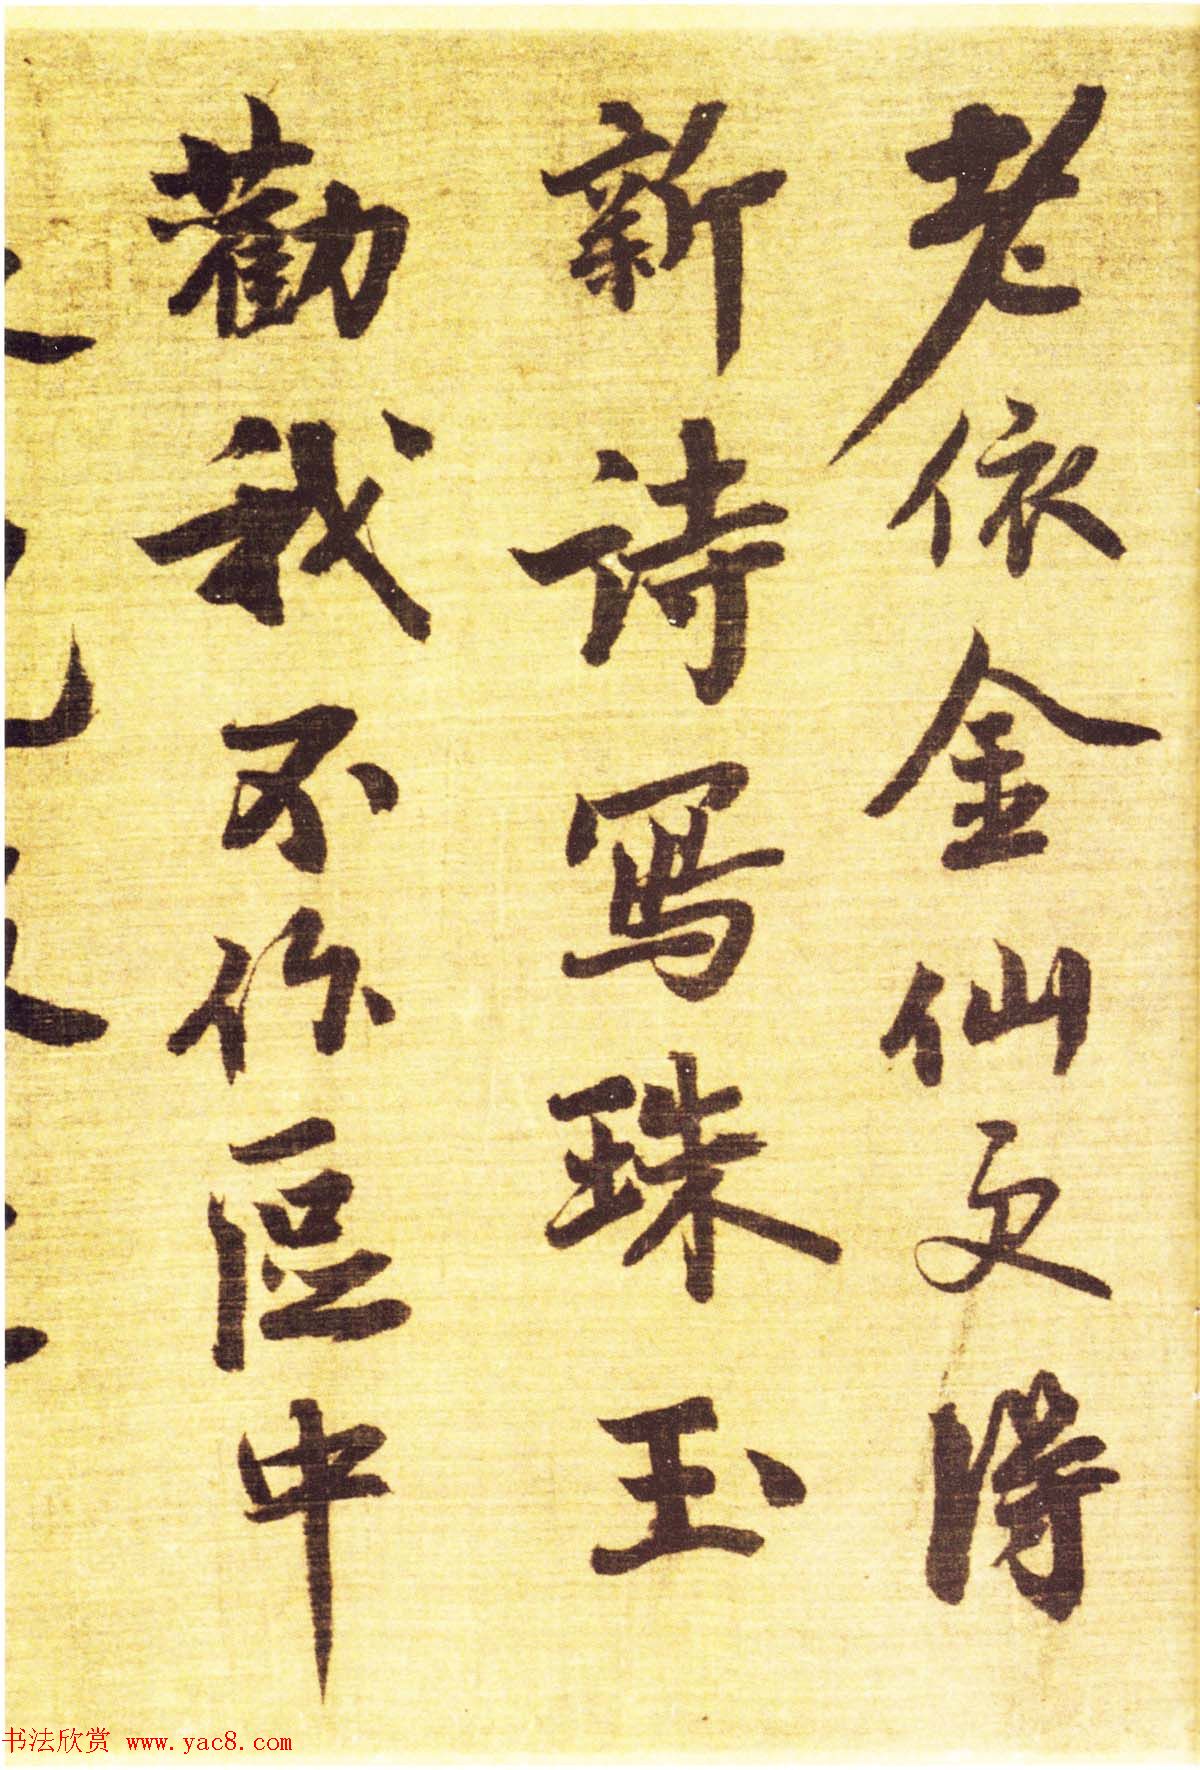 老依金仙文得
新诗寫珠玉
勸我不作區中
书法欣赏 www.yac8.com